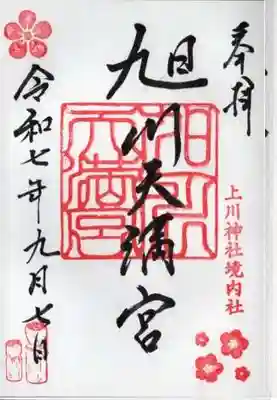 奉拝
旭川天満宮
上川神社境内社
令和七年九月七日